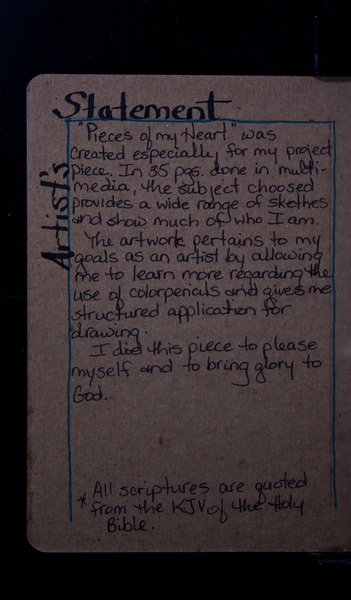 Artist's
Statement
"Pieces of my Heart" was
created especially for my project
piece. In 35 pgs. done in multi-
media, the subject choosed
provides a wide range of skethes
and show much of who I am.
The artwork pertains to my
goals as an artist by allowing
me to learn more regarding the
use of colorpencils and gives me
structured application for
drawing.
I did this piece to please
myself and to bring glory to
God.
* All scriptures are quoted
from the KJV of the Holy
Bible.